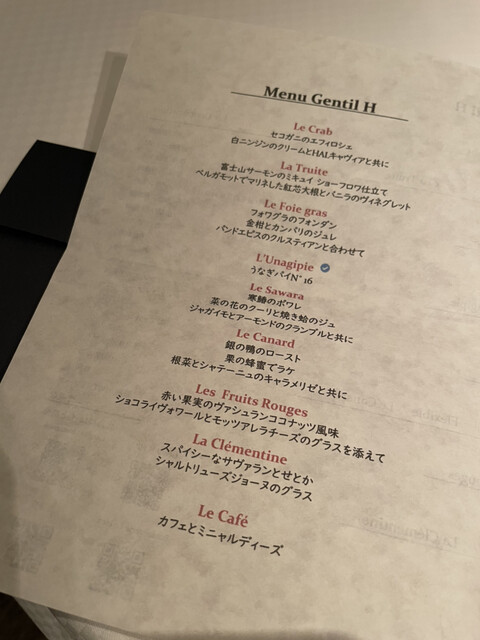 Menu Gentil H
Le Crab
セコガニのエフィロシェ
白ニンジンのクリームとHALキャヴィアと共に
La Truite
富士山サーモンのミキュイ ショーフロワ仕立て
ベルガモットでマリネした紅芯大根とバニラのヴィネグレット
Le Foie gras
フォワグラのフォンダン
金柑とカンパリのジュレ
パンドエピスのクルスティアンと合わせて
L'Unagipie
うなぎパイN°16
Le Sawara
寒鰆のポワレ
菜の花のクーリと焼き蛤のジュ
ジャガイモとアーモンドのクランブルと共に
Le Canard
銀の鴨のロースト
栗の蜂蜜でラケ
根菜とシャテーニュのキャラメリゼと共に
Les Fruits Rouges
赤い果実のヴァシュランココナッツ風味
ショコライヴォワールとモッツアレラチーズのグラスを添えて
La Clémentine
スパイシーなサヴァランとせとか
シャルトリューズジョーヌのグラス
Le Café
カフェとミニャルディーズ